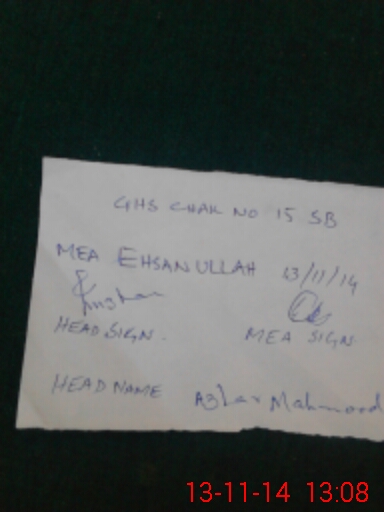 GHS CHAK NO 15 SB
MEA EHSANULLAH 13/11/14
HEAD SIGN. MEA SIGN.
HEAD NAME Azhar Mahmood
13-11-14 13:08